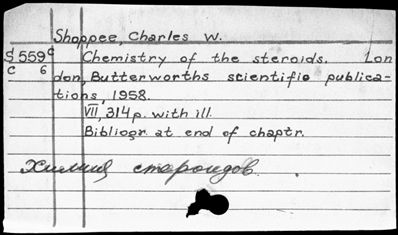 Shoppee, Charles W.
S 559 c Chemistry of the steroids. Lon
c 6 don, Butterworths scientific publica-
tions, 1958.
VII, 314 p. with ill.
Bibliogr. at end of chaptr.
Химия стероидов.